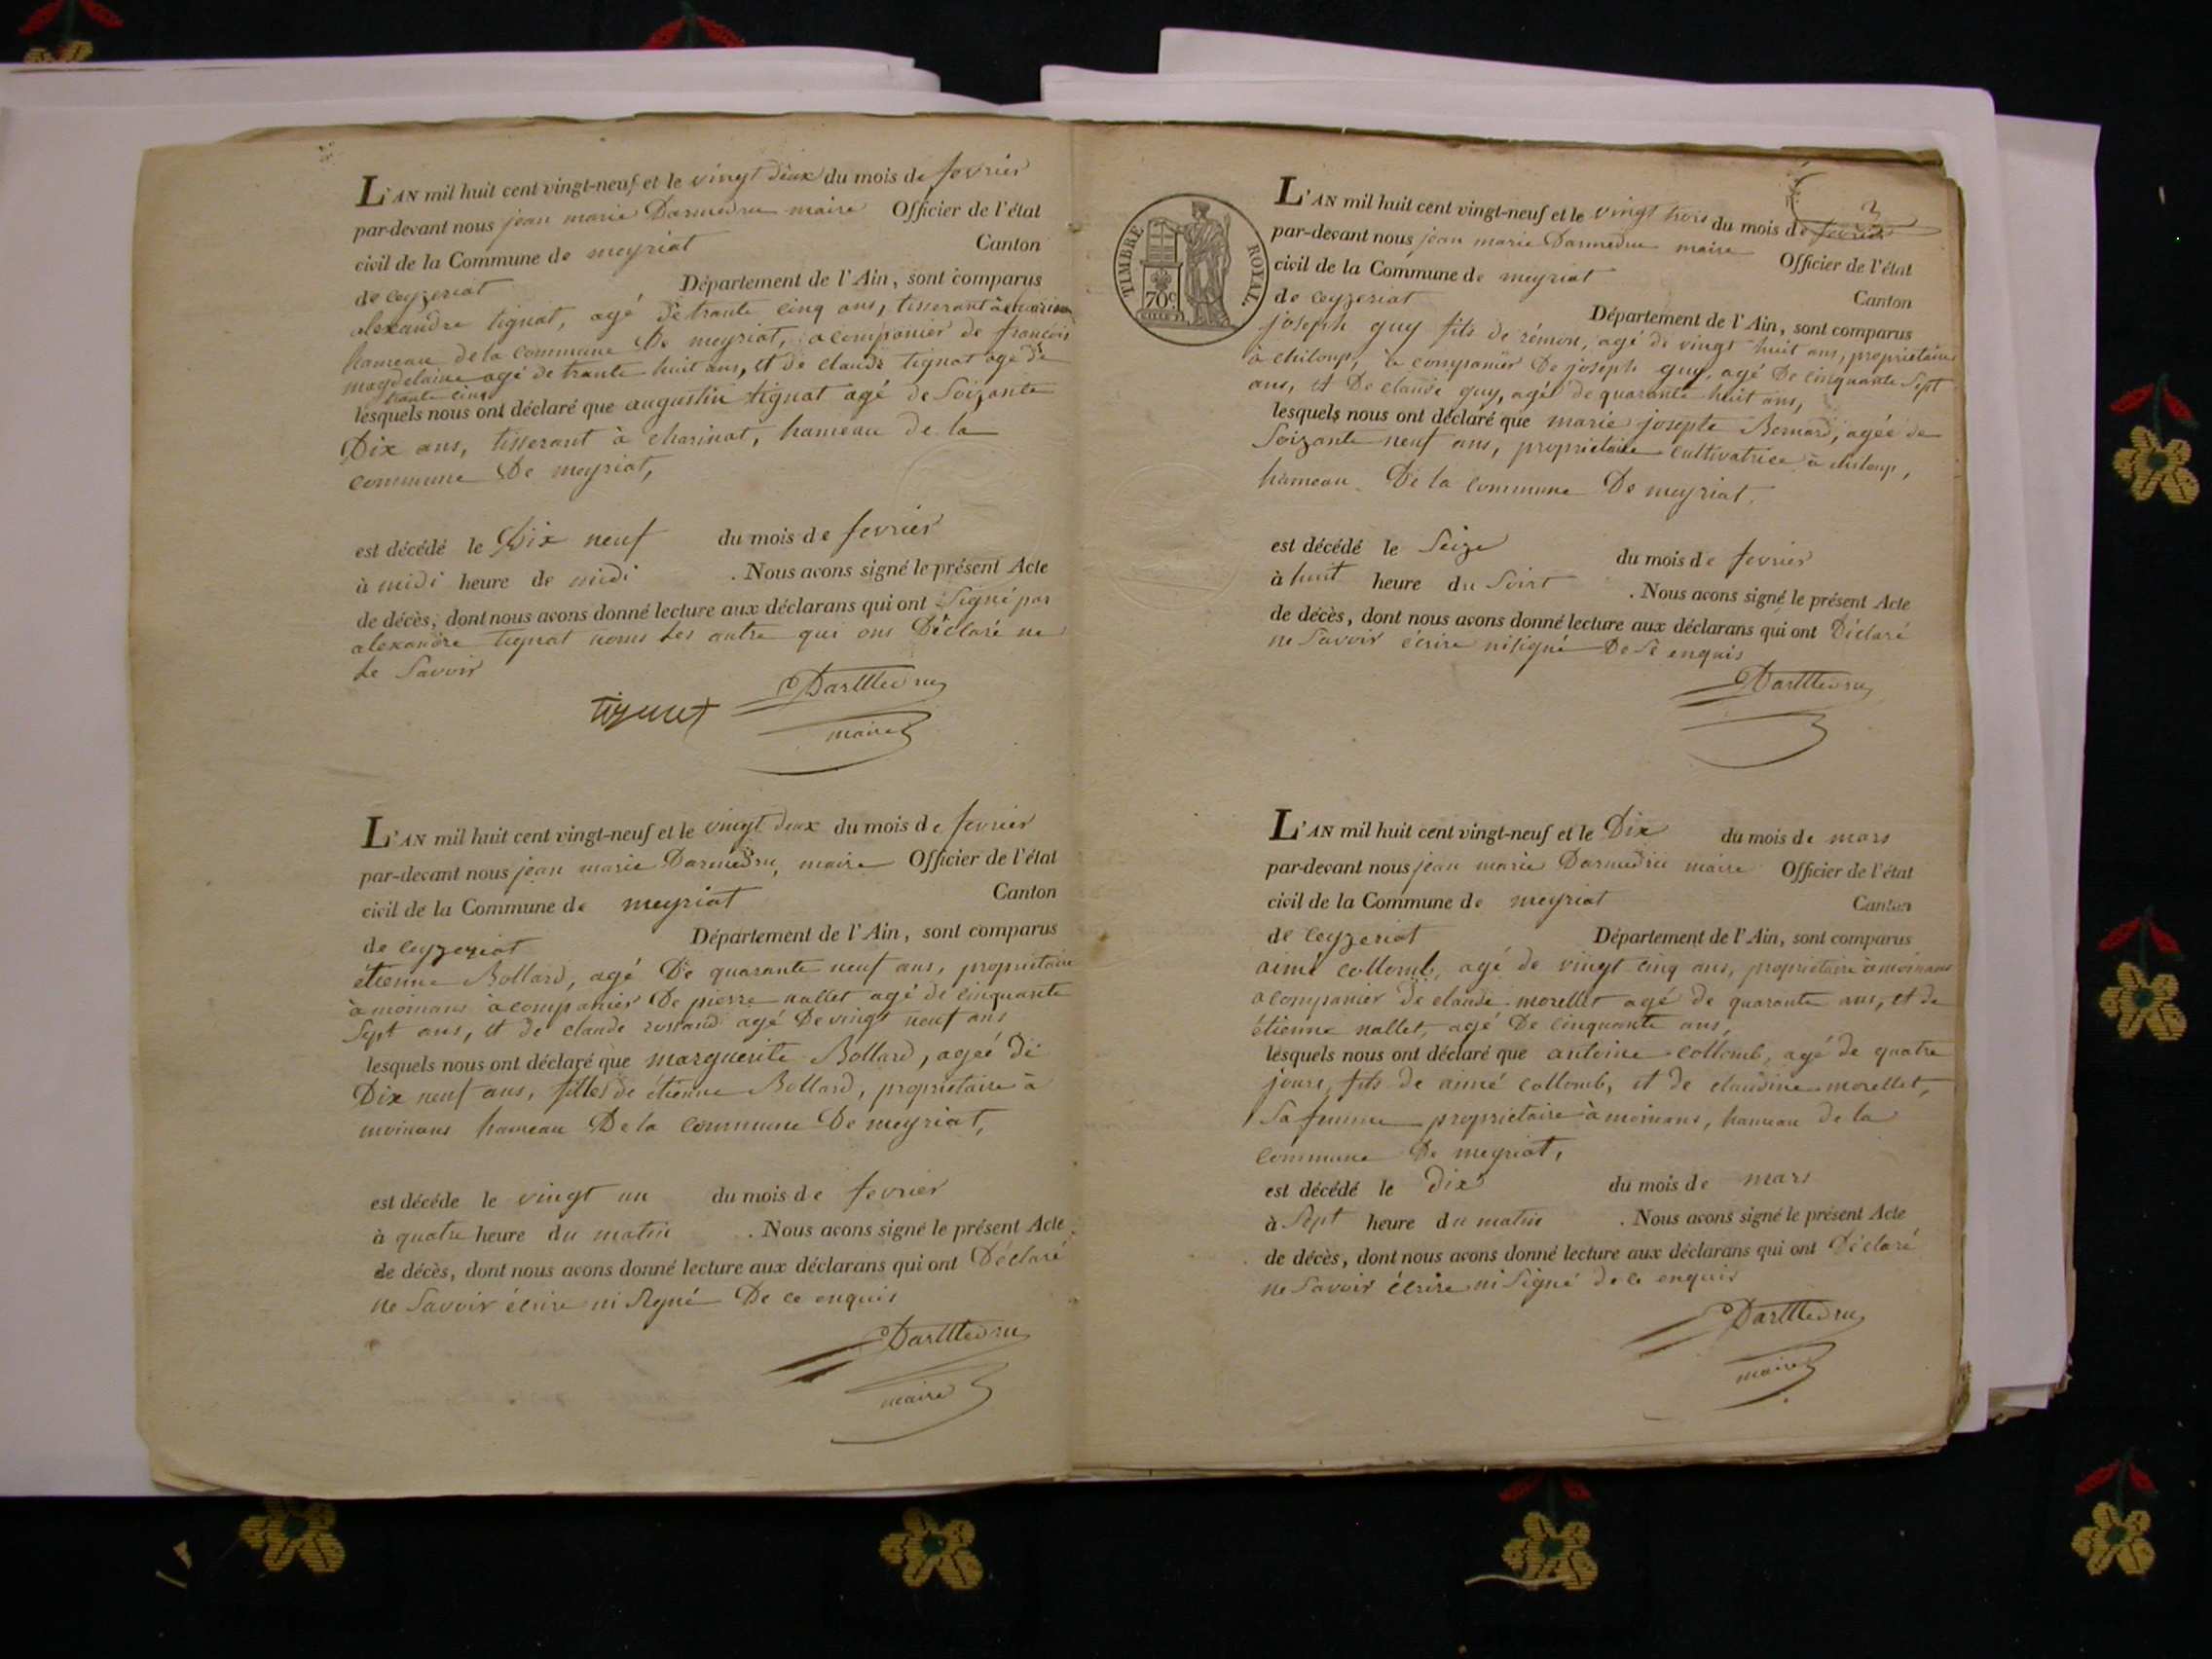 L'AN mil huit cent vingt-neuf et le vingt deux du mois de fevrier
par-devant nous jean marie Darmedru maire Officier de l'état
civil de la Commune de meyriat Canton
de ceyzeriat Département de l'Ain, sont comparus
alexandre tignat, agé de trante cinq ans, tisserant à charinat
hameau de la commune De meyriat, acompanier de francois
magdelaine agé de trante huit ans, et de claude tignat agé de
trante cinq
lesquels nous ont déclaré que augustin tignat agé de Soizante
Dix ans, tisserant à charinat, hameau de la
commune De meyriat,
est décédé le Dix neuf du mois de fevrier
à midi heure de midi . Nous avons signé le présent Acte
de décès, dont nous avons donné lecture aux déclarans qui ont Signé par
alexandre tignat nous les autre qui ons Déclaré ne
le Savoir
tignat DarMedru
maire
L'AN mil huit cent vingt-neuf et le vingt deux du mois de fevrier
par-devant nous jean marie Darmedru, maire Officier de l'état
civil de la Commune de meyriat Canton
de ceyzeriat Département de l'Ain, sont comparus
étienne Bollard, agé De quarante neuf ans, propriétaire
à moinans àcompanier De pierre nallet agé de cinquante
Sept ans, et de claude agé De vingt neuf ans
lesquels nous ont déclaré que marguerite Bollard, ageé de
Dix neuf ans, filles de étienne Bollard, propriétaire à
moinans hameau De la commune De meyriat,
est décéde le vingt un du mois de fevrier
à quatre heure du matin . Nous avons signé le présent Acte
de décès, dont nous avons donné lecture aux déclarans qui ont Déclaré
ne Savoir écrire ni Signé De ce enquis
DarMedru
maire
3
TIMBRE ROYAL.
70c
L'AN mil huit cent vingt-neuf et le vingt trois du mois de fevrier
par-devant nous jean marie Darmedru maire Officier de l'état
civil de la Commune de meyriat Canton
de ceyzeriat Département de l'Ain, sont comparus
joseph guy fils de rémon, agé de vingt huit ans, propriétaire
à chiloup, a companier De joseph guy, agé De cinquante Sept
ans, et De claude guy, agés de quarante huit ans,
lesquels nous ont déclaré que marie josepte Bernard, ageé de
Soizante neuf ans, propriétaire cultivatrice à chiloup,
hameau De la commune De meyriat.
est décédé le Seize du mois de fevrier
à huit heure du Soirt . Nous avons signé le présent Acte
de décès, dont nous avons donné lecture aux déclarans qui ont Déclaré
ne Savoir écrire ni signé De Se enquis
DarMedru
L'AN mil huit cent vingt-neuf et le Dix du mois de mars
par-devant nous jean marie Darmedru maire Officier de l'état
civil de la Commune de meyriat Canton
de ceyzeriat Département de l'Ain, sont comparus
aimé collomb, agé de vingt cinq ans, propriétaire à moinans
acompanier De claude morellet agé de quarante ans, et de
étienne nallet, agé De cinquante ans,
lesquels nous ont déclaré que antoine collomb, agé de quatre
jours, fils de aimé collomb, et de claudine morellet,
Sa femme propriétaire à moinans, hameau de la
commune De meyriat,
est décédé le dix du mois de mars
à Sept heure du matin . Nous avons signé le présent Acte
de décès, dont nous avons donné lecture aux déclarans qui ont Déclaré
ne Savoir écrire ni Signé de ce enquis
DarMedru
maire